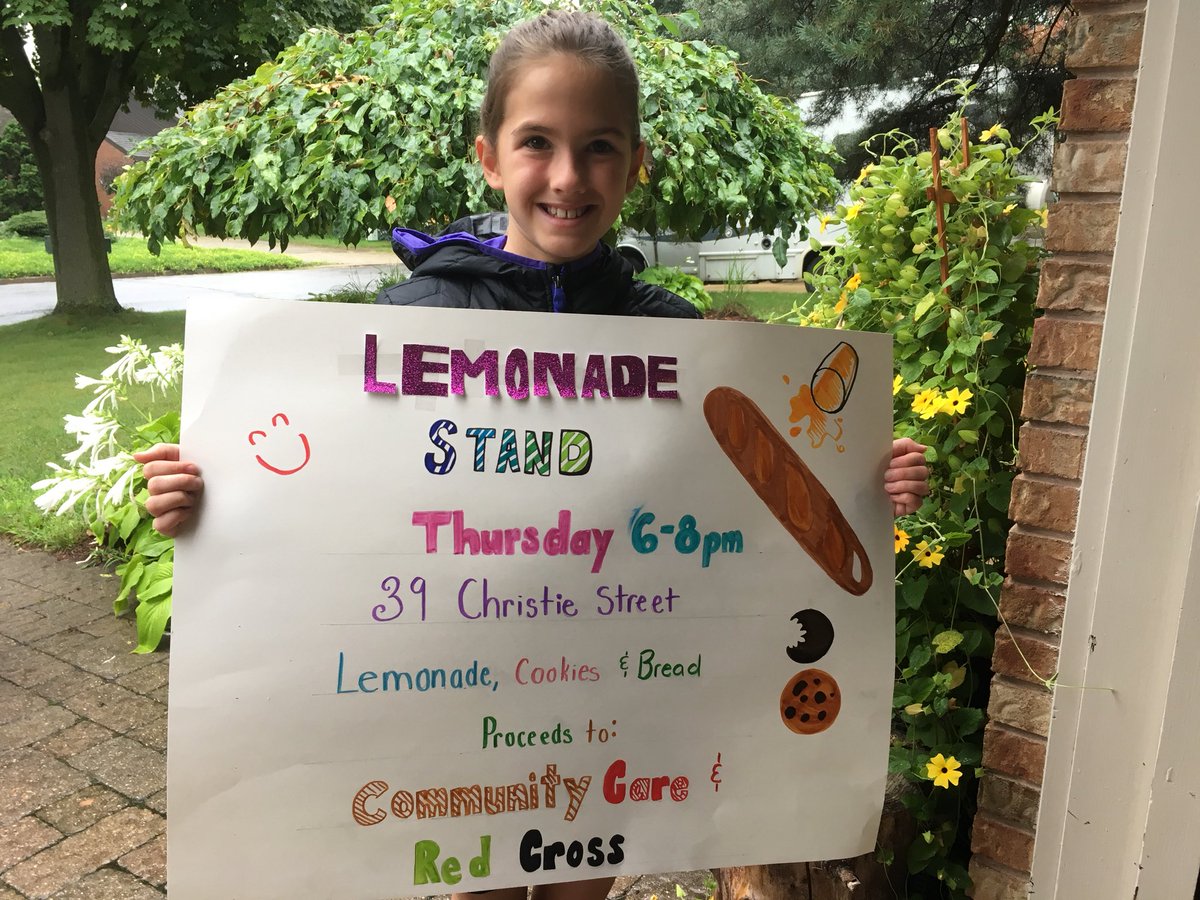 LEMONADE
STAND
Thursday 6-8pm
39 Christie Street
Lemonade, Cookies & Bread
Proceeds to:
Community Care &
Red Cross